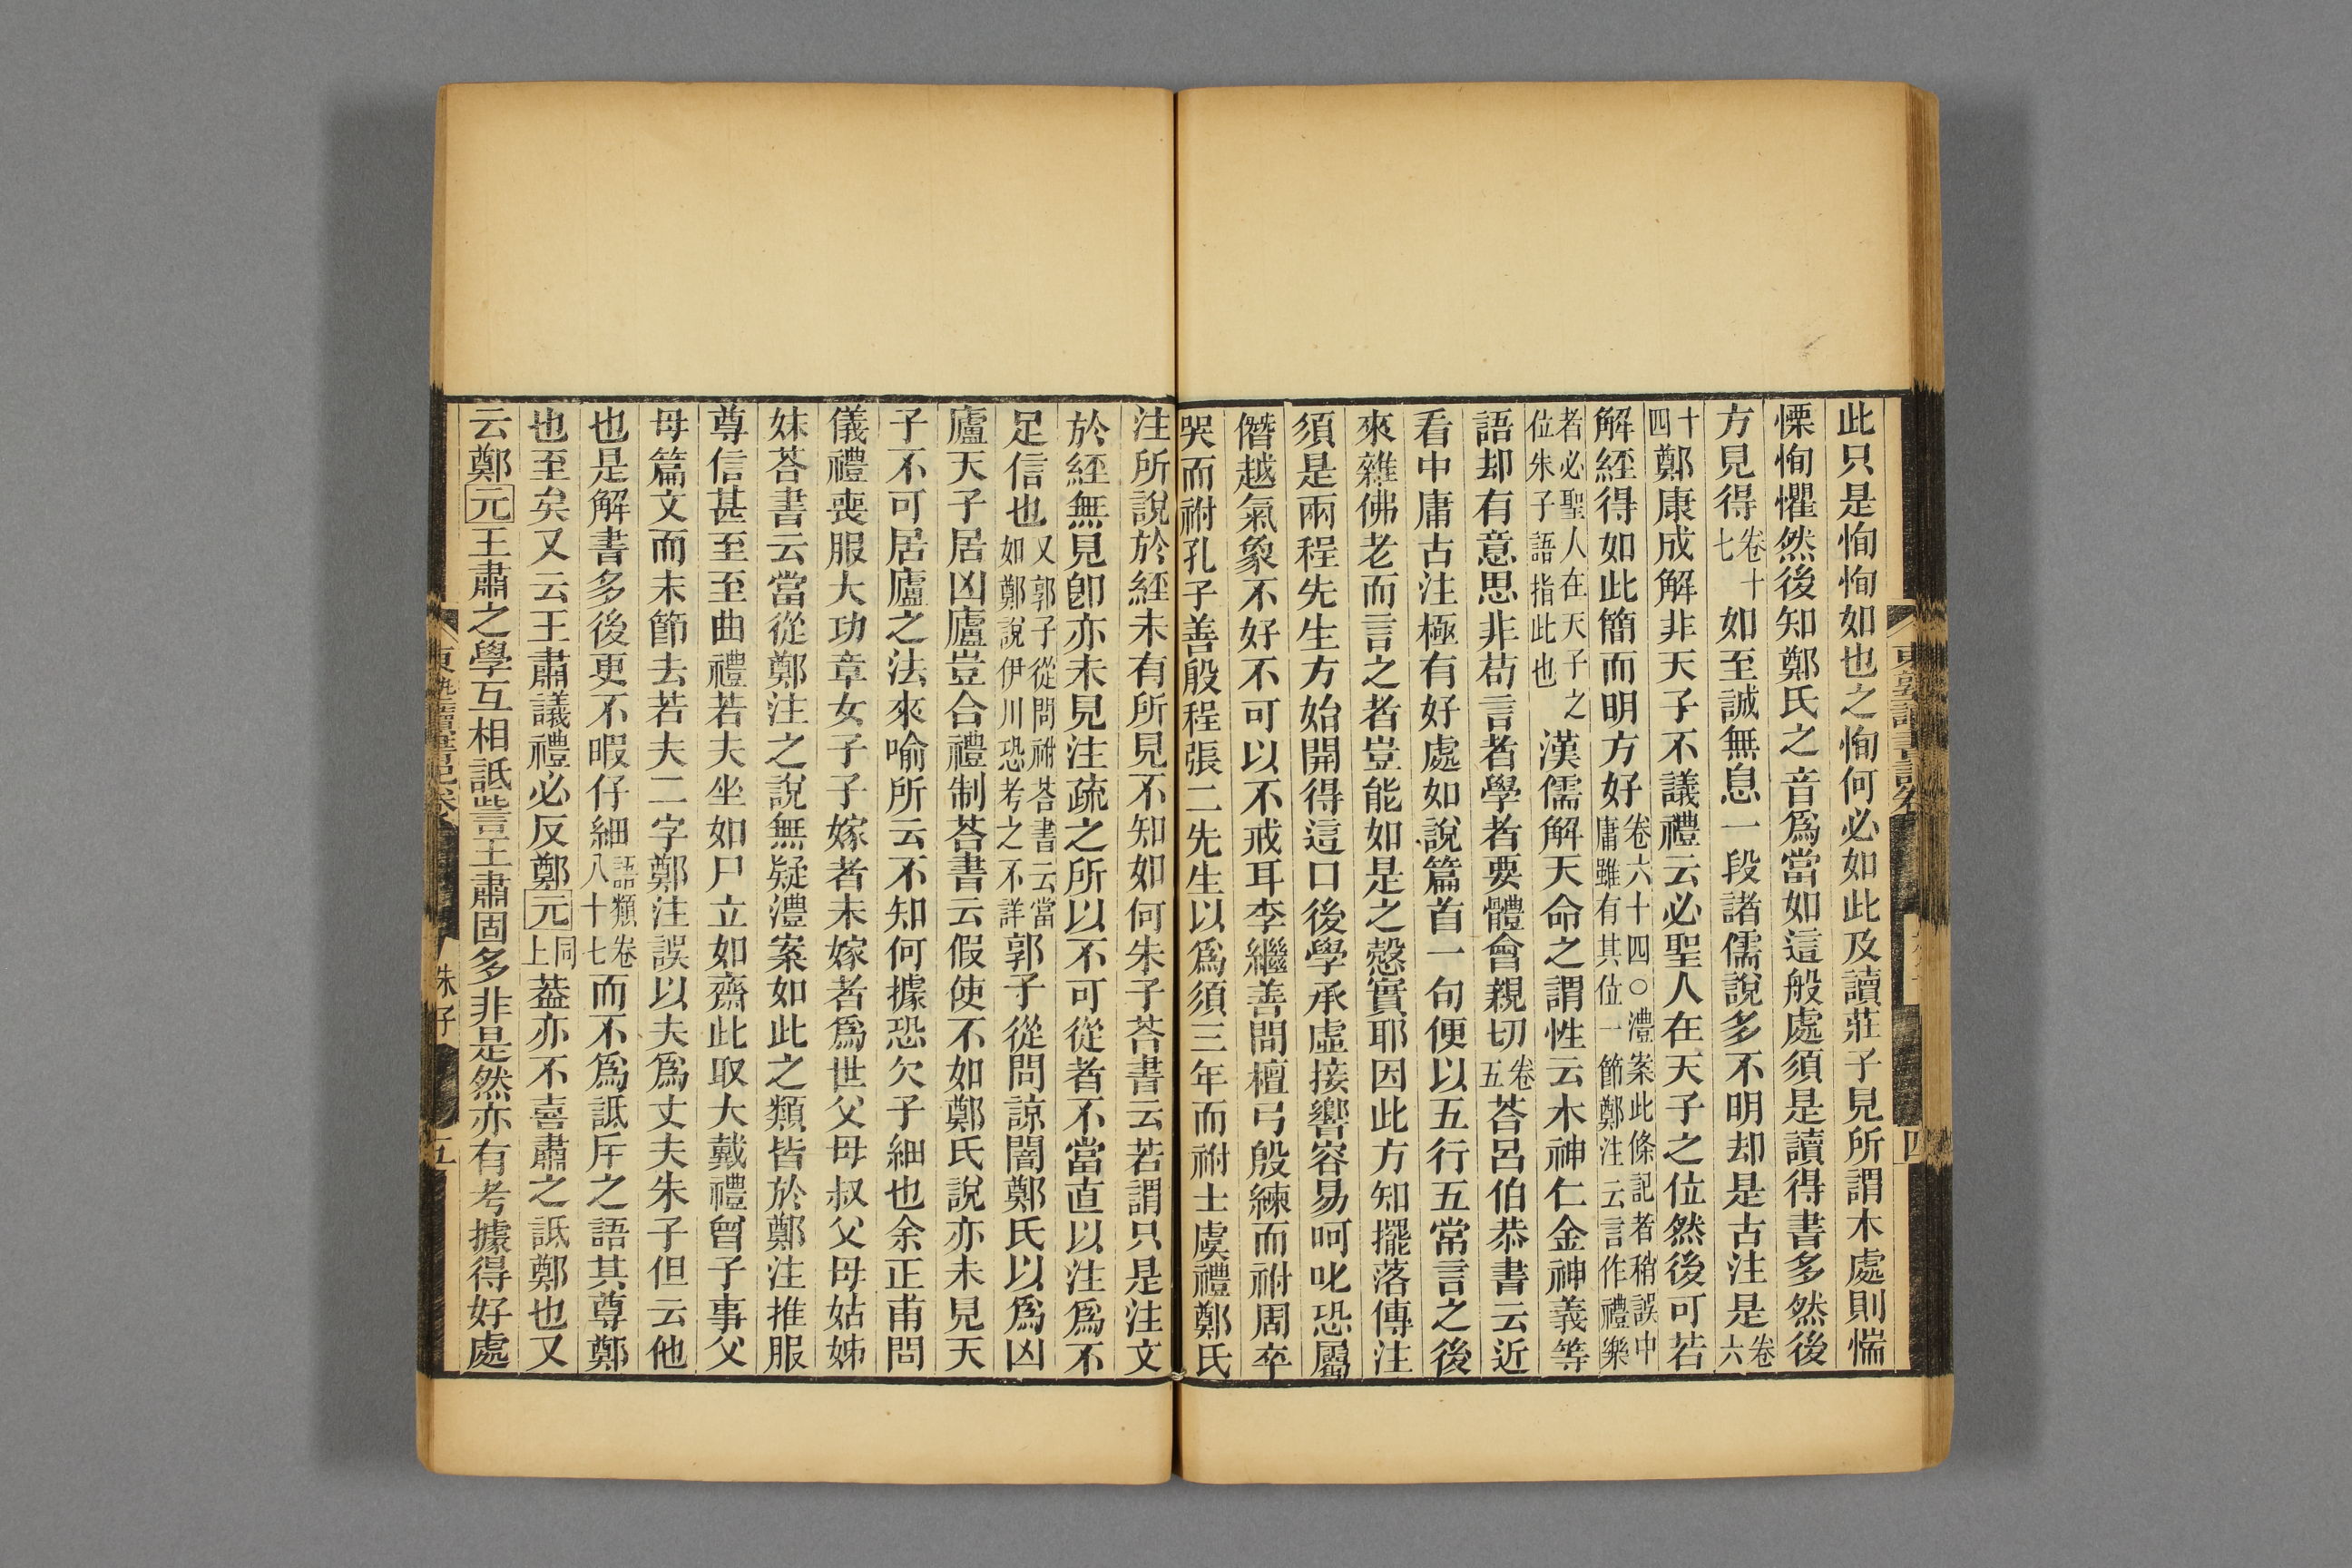 此只是恂恂如也之恂何必如此及讀莊子見所謂木處則惴
慄恂懼然後知鄭氏之音爲當如這般處須是讀得書多然後
方見得卷十七如至誠無息一段諸儒說多不明却是古注是卷六
十四鄭康成解非天子不議禮云必聖人在天子之位然後可若
解經得如此簡而明方好卷六十四○澧案此條記者稍誤中庸雖有其位一節鄭注云言作禮樂
者必聖人在天子之位朱子語指此也漢儒解天命之謂性云木神仁金神義等
語却有意思非苟言者學者要體會親切卷五荅呂伯恭書云近
看中庸古注極有好處如說篇首一句便以五行五常言之後
來雜佛老而言之者豈能如是之慤實耶因此方知擺落傳注
須是兩程先生方始開得這口後學承虛接響容易呵叱恐屬
僭越氣象不好不可以不戒耳李繼善問檀弓殷練而祔周卒
哭而祔孔子善殷程張二先生以爲須三年而祔士虞禮鄭氏
注所說於經未有所見不知如何朱子荅書云若謂只是注文
於經無見卽亦未見注疏之所以不可從者不當直以注爲不
足信也又郭子從問祔荅書云當如鄭說伊川恐考之不詳郭子從問諒闇鄭氏以爲凶
廬天子居凶廬豈合禮制荅書云假使不如鄭氏說亦未見天
子不可居廬之法來喻所云不知何據恐欠子細也余正甫問
儀禮喪服大功章女子子嫁者未嫁者爲世父母叔父母姑姊
妹荅書云當從鄭注之說無疑澧案如此之類皆於鄭注推服
尊信甚至至曲禮若夫坐如尸立如齊此取大戴禮曾子事父
母篇文而未節去若夫二字鄭注誤以夫爲丈夫朱子但云他
也是解書多後更不暇仔細語類卷八十七而不爲詆斥之語其尊鄭
也至矣又云王肅議禮必反鄭元同上葢亦不喜肅之詆鄭也又
云鄭元王肅之學互相詆訾王肅固多非是然亦有考據得好處
朱子
五